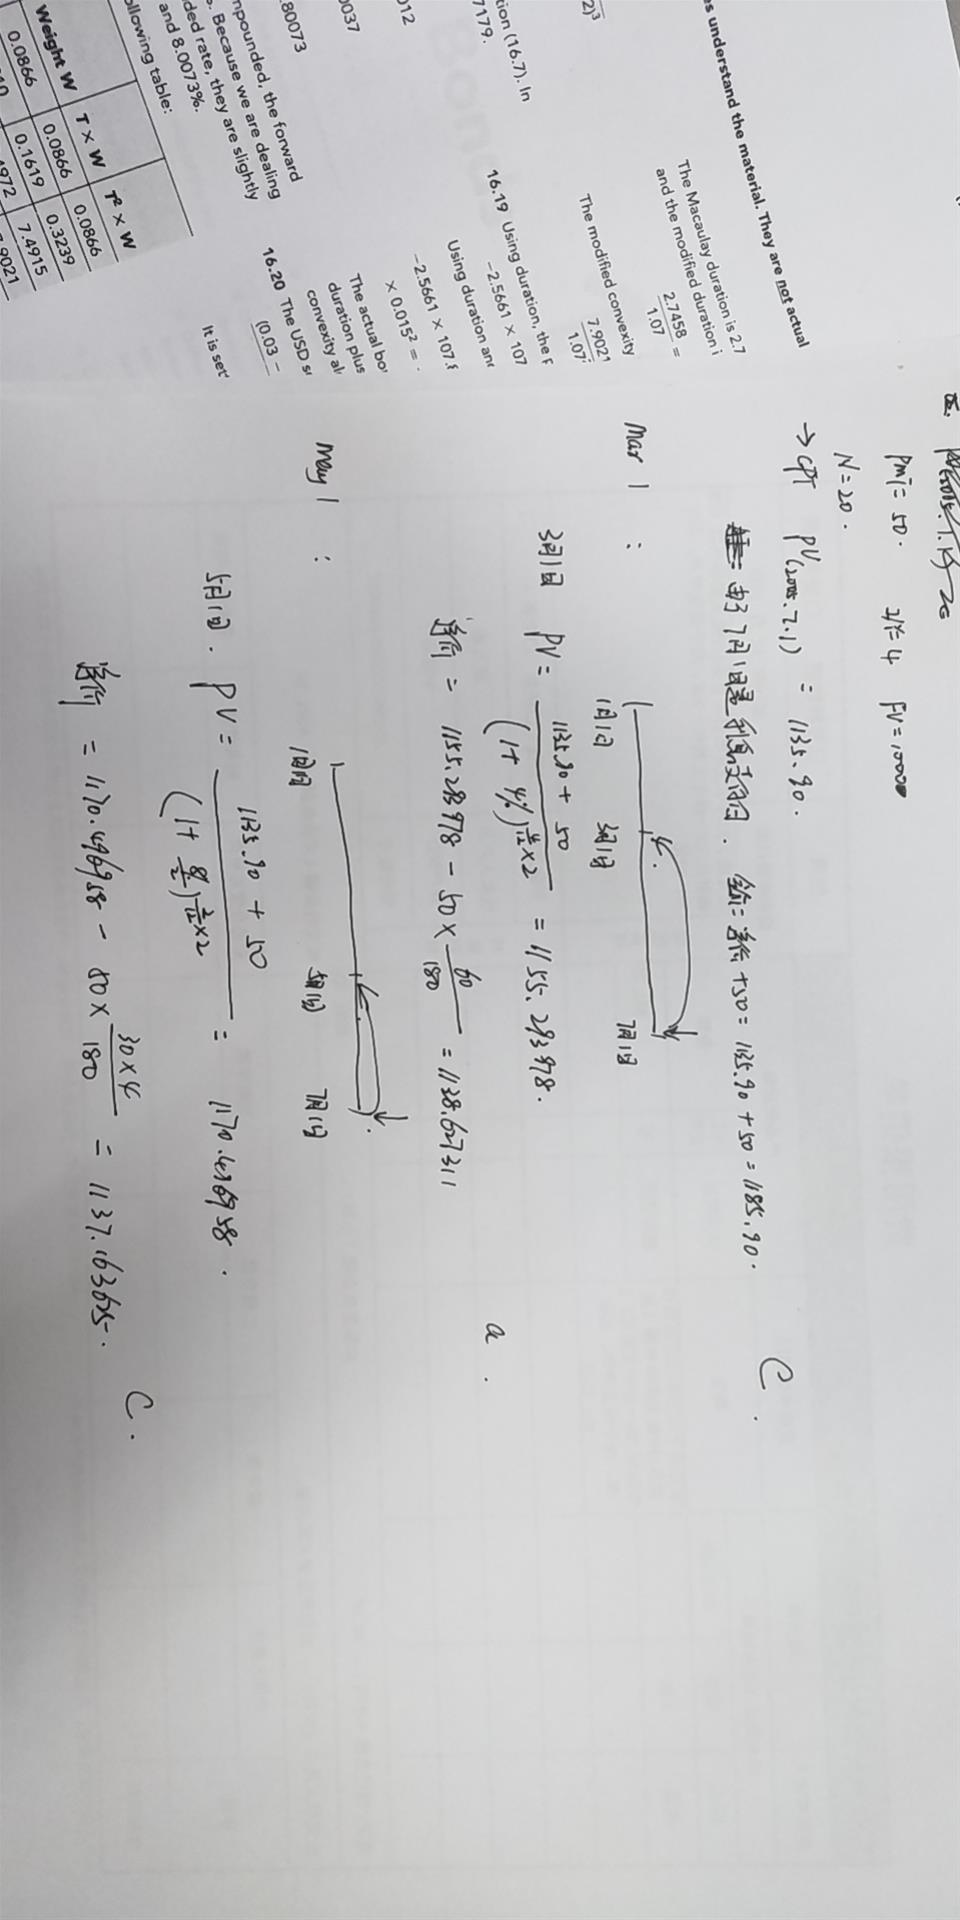 es understand the material. They are not actual
The Macaulay duration is 2.7
and the modified duration i
2.7458
1.07
=
The modified convexity
7.902
1.07
16.19 Using duration, the
-2.5661 × 107
Using duration and
-2.5661 × 107.
× 0.015² =
The actual bo
duration plus
convexity al
16.20 The USD
(0.03 –
It is set
2)³
tion (16.7). In
7179.
012
0037
.80073
mpounded, the forward
. Because we are dealing
ded rate, they are slightly
and 8.0073%.
ollowing table:
Weight W T × W T² × W
0.0866 0.0866 0.0866
0.1619 0.3239
7.4915
7.9021
Pmt = 50. I/Y = 4 FV = 10000
N = 20.
→ CPT PV(2005.7.1) = 1135.90.
由于7月1日是利息支付日. 全价=净价+50= 1135.90+50=1185.90.
C.
Mar 1 :
1月1日 3月1日 7月1日
3月1日 PV = 1135.90 + 50 / (1 + 4%)^(4/12 × 2) = 1155.293978.
净价 = 1155.293978 - 50 × 60/180 = 1138.627311
a.
May 1 :
1月1日 5月1日 7月1日
5月1日. PV = 1135.90 + 50 / (1 + 8%/2)^(2/12 × 2) = 1170.496958.
净价 = 1170.496958 - 50 × 30×4/180 = 1137.163625.
C.